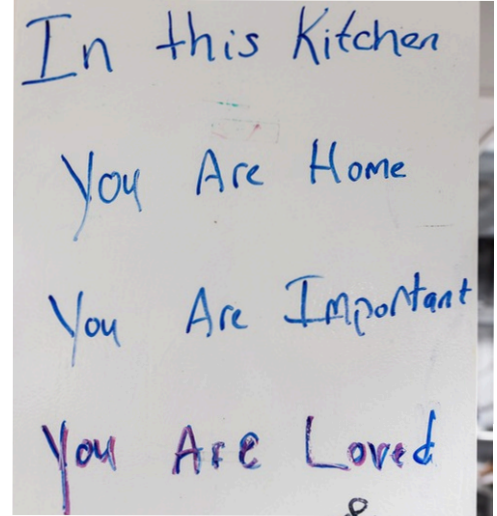 In this Kitchen
You Are Home
You Are Important
You Are Loved